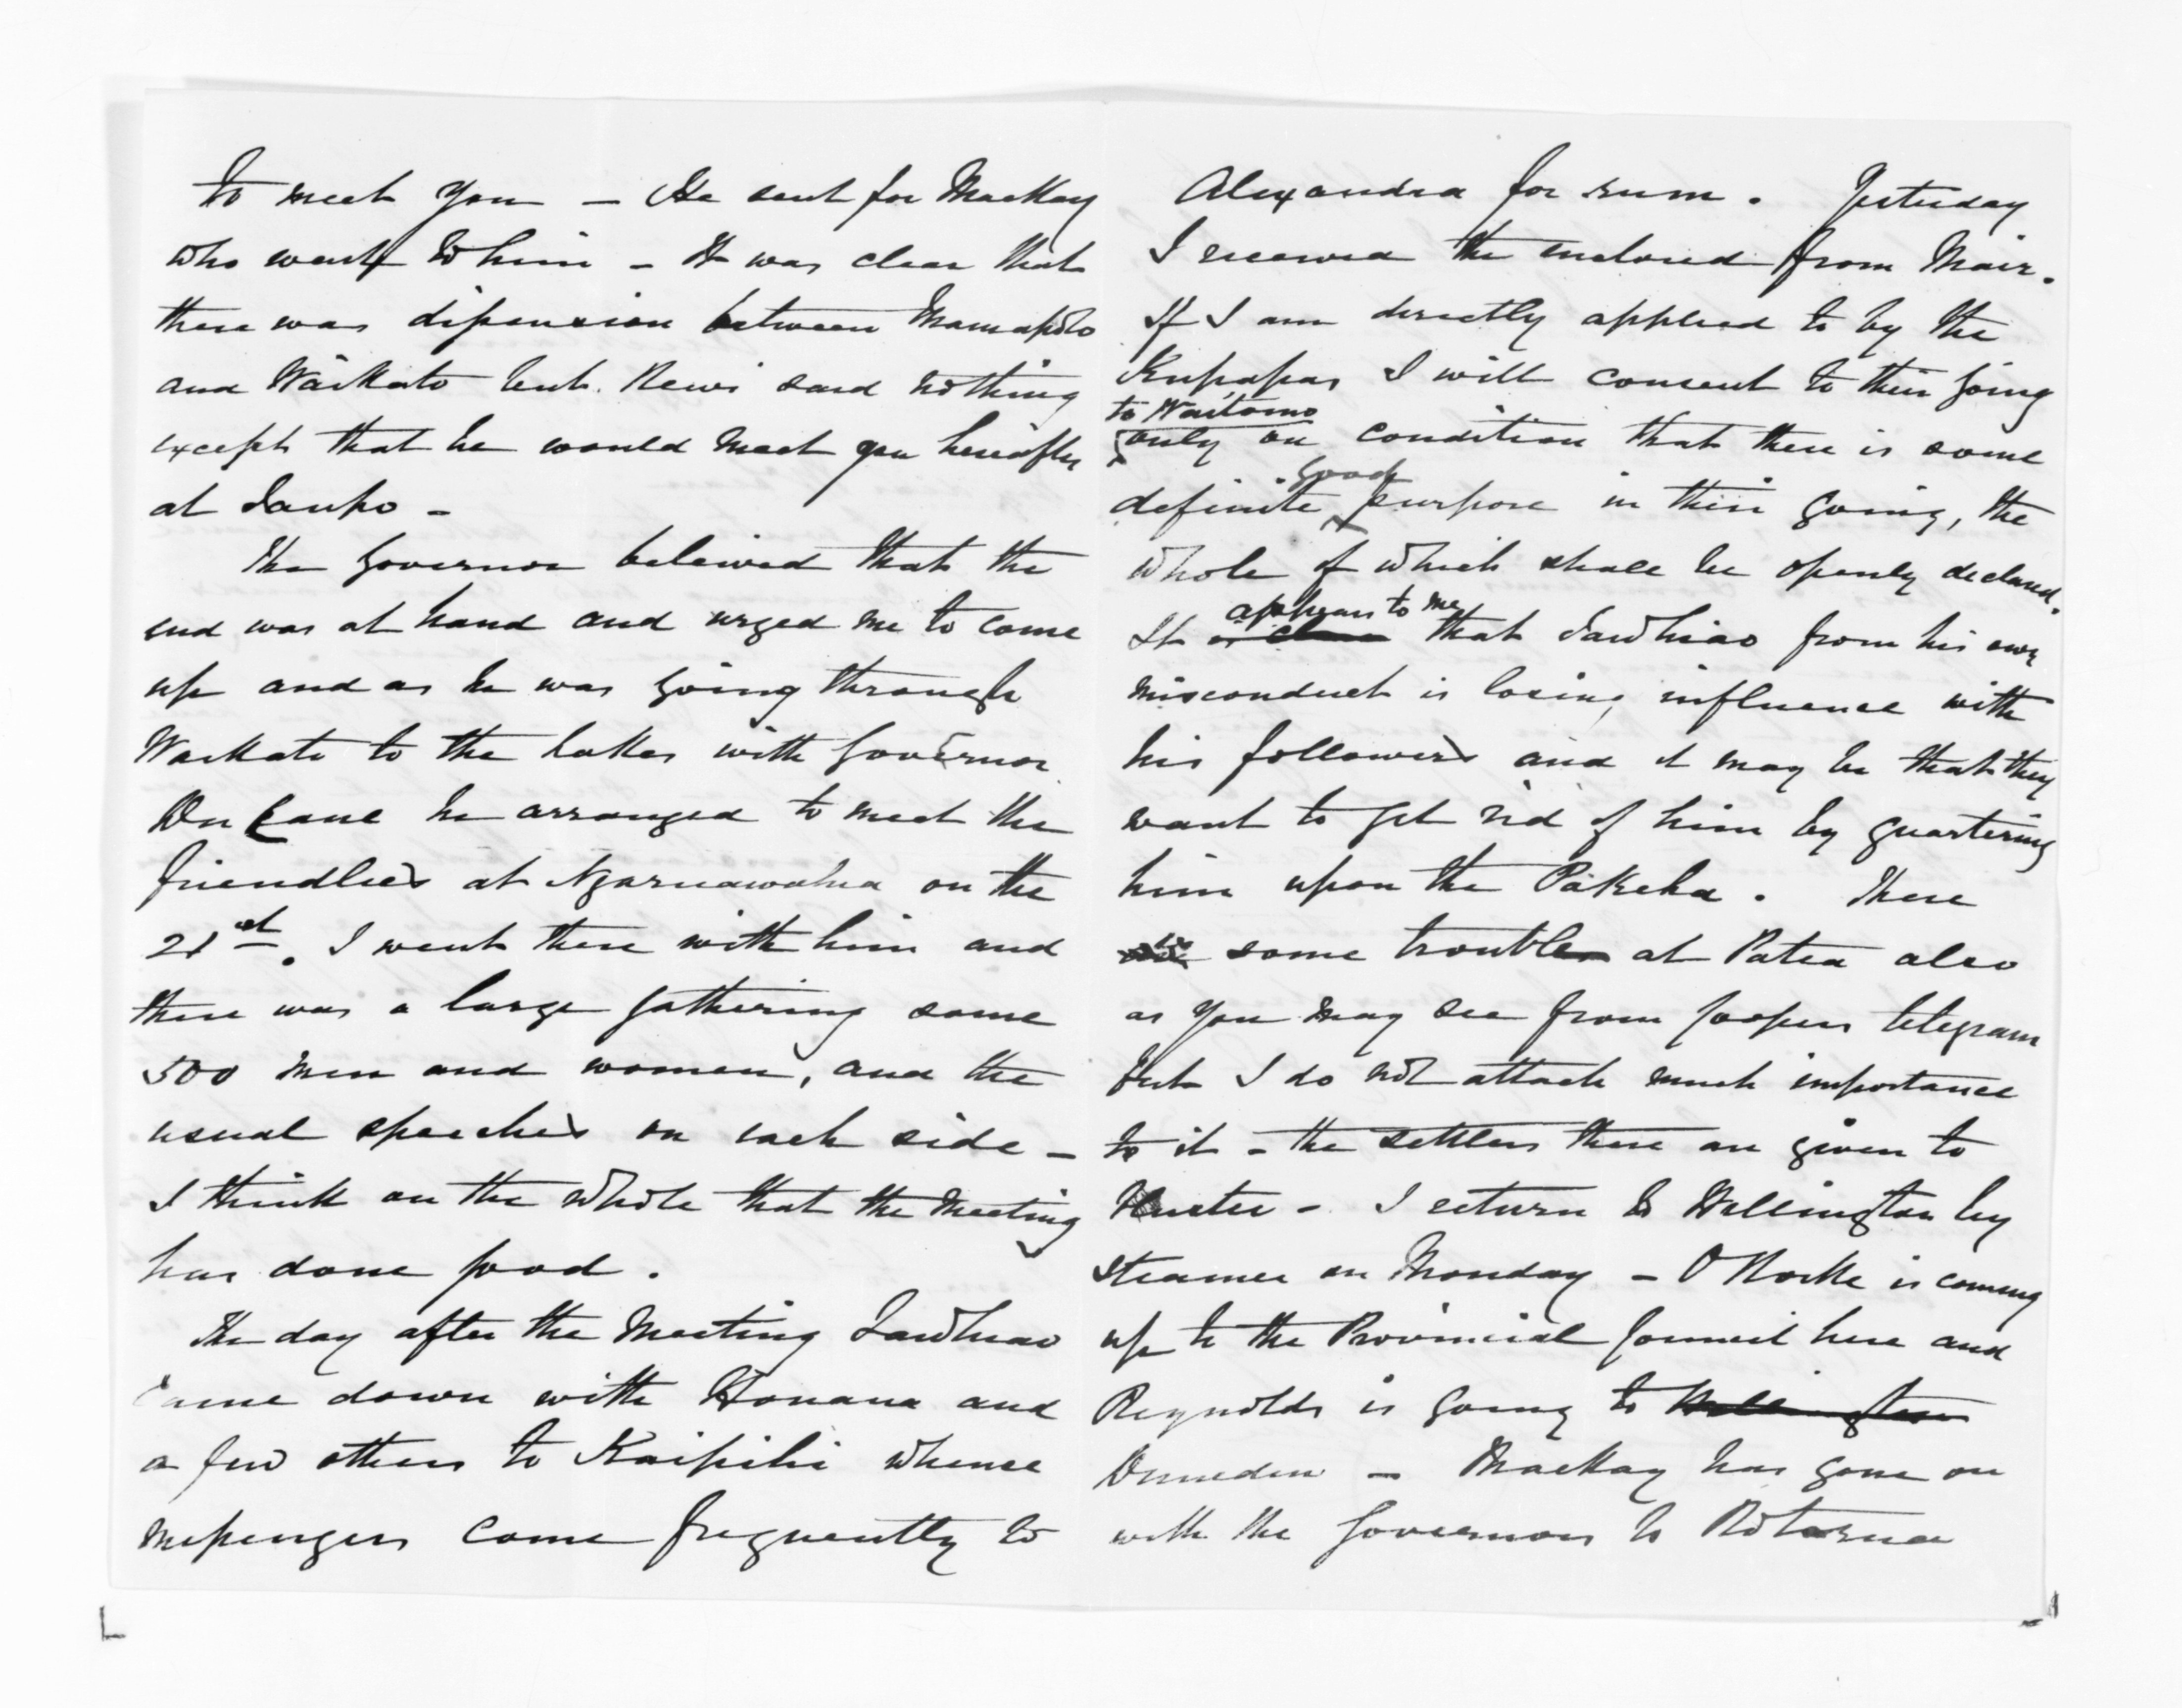 to meet you – He sent for Mackay
who went to him – It was clear that
there was dissension between Maniapoto
and Waikato but Rewi said nothing
except that he would meet you hereafter
at Taupo –
The Governor beleived that the
end was at hand and urged me to come
up and as he was going through
Waikato to the lakes with Governor
Du Cane he arranged to meet the
friendlies at Ngaruawahia on the
21st. I went there with him and
there was a large gathering some
500 men and women, and the
usual speeches on each side –
I think on the whole that the meeting
has done good.
The day after the meeting Tawhiao
came down with Honana and
a few others to Kaipihi whence
messengers come frequently to
Alexandra for rum. Yesterday
I received the enclosed from Mair.
If I am directly applied to by the
Kupapas I will consent to their going
to Waitomo
only on condition that there is some
good
definite purpose in their going, the
whole of which shall be openly declared.
appears to me
It is clear that Tawhiao from his own
misconduct is losing influence with
his followers and it may be that they
want to get rid of him by quartering
him upon the Pakeha. There
is some trouble at Patea also
as you may see from Coopers telegram
but I do not attach much importance
to it – the settlers there are given to
bluster – I return to Wellington by
steamer on Monday – O'Rorke is coming
up to the Provincial Council here and
Reynolds is going to Wellington
Dunedin – Mackay has gone on
with the Governors to Rotorua